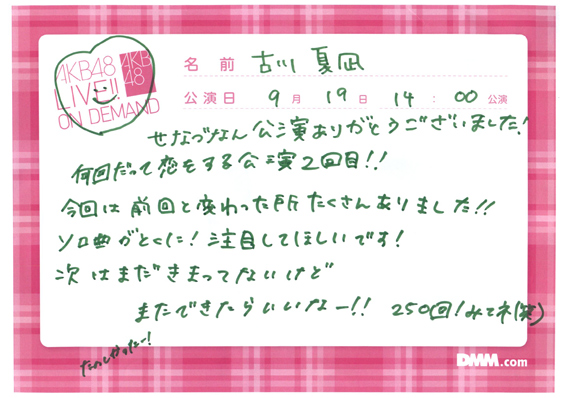 AKB48
LIVE!!
ON DEMAND
AKB
48
名前 古川 夏凪
公演日 9月 19日 14:00公演
せなづなん公演ありがとうございました!
何回だって恋をする公演2回目!!
今回は前回と変わった所たくさんありました!!
ソロ曲がとくに!注目してほしいです!
次はまだきまってないけど
またできたらいいなー!! 250回!みてネ(笑)
たのしかったー!
DMM.com